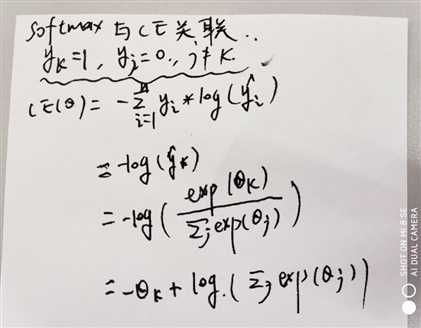 softmax 与 CE 关联..
y_k=1, y_j=0, j≠k.
CE(θ) = -∑_{i=1}^{n} y_i * log(ŷ_i)
= -log(ŷ_k)
= -log( exp(θ_k) / ∑_j exp(θ_j) )
= -θ_k + log.( ∑_j exp(θ_j) )
SHOT ON MI 8 SE
AI DUAL CAMERA